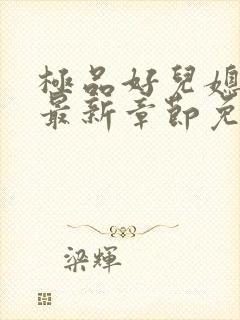 極品好兒媳
最新章節免
梁輝